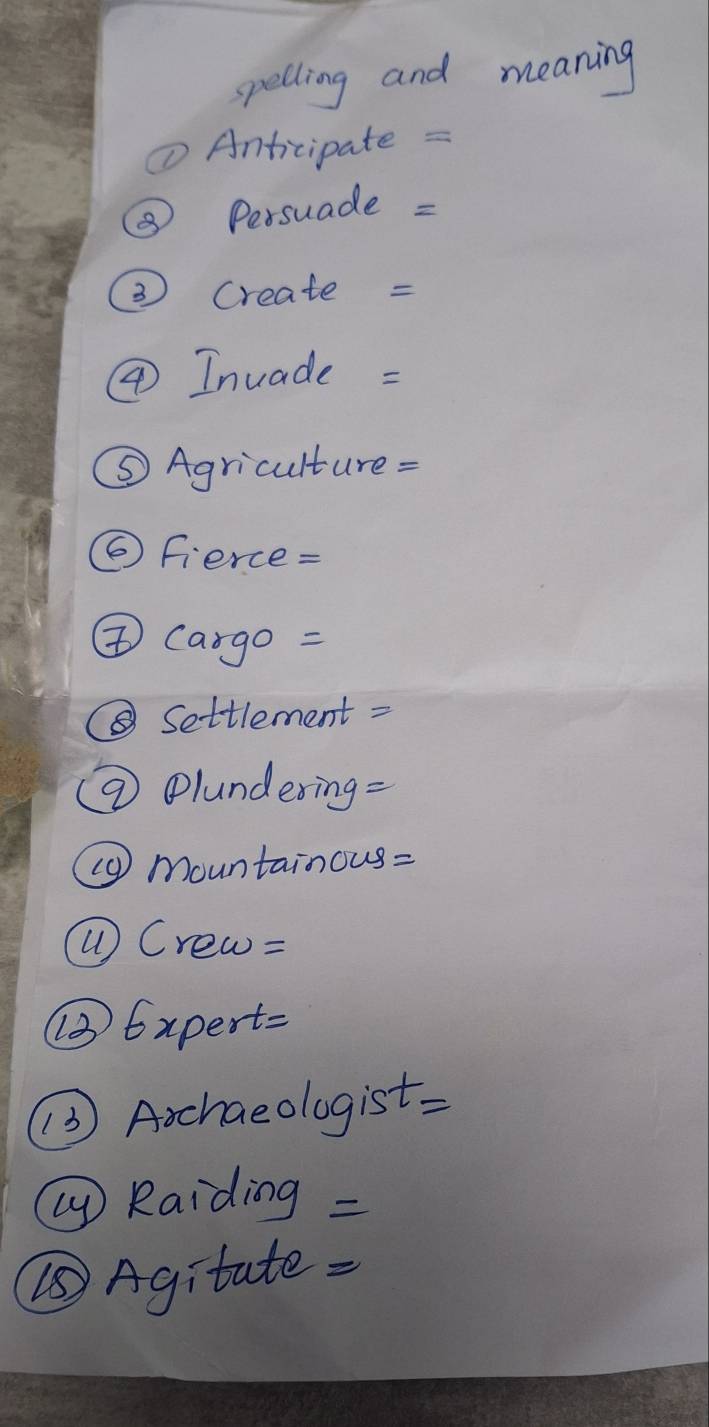 spelling and meaning
① Anticipate =
② Persuade =
③ Create =
④ Invade =
⑤ Agriculture =
⑥ Fierce =
⑦ Cargo =
⑧ Settlement =
⑨ Plundering =
⑩ Mountainous =
⑪ Crew =
⑫ Expert =
⑬ Archaeologist =
⑭ Raiding =
⑮ Agitate =